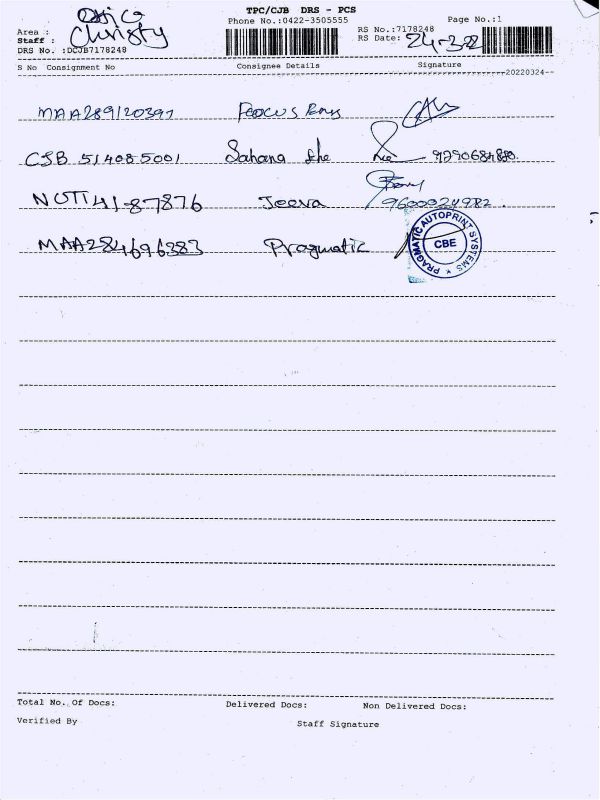 TPC/CJB DRS - PCS
Phone No.:0422-3505555 Page No.:1
Area :
Staff : Christy
RS No.:7178248
RS Date: 24-3-22
DRS No. :DCJB7178248
S No Consignment No Consignee Details Signature
20220324
MAA289120397
CJB 514085001 Sahana 9290684880.
NUT141-87876 Jeeva 9600024982.
MAA284696383 Pragmatic
PRAGMATIC AUTOPRINT SYSTEMS
CBE
Total No. Of Docs: Delivered Docs: Non Delivered Docs:
Verified By Staff Signature